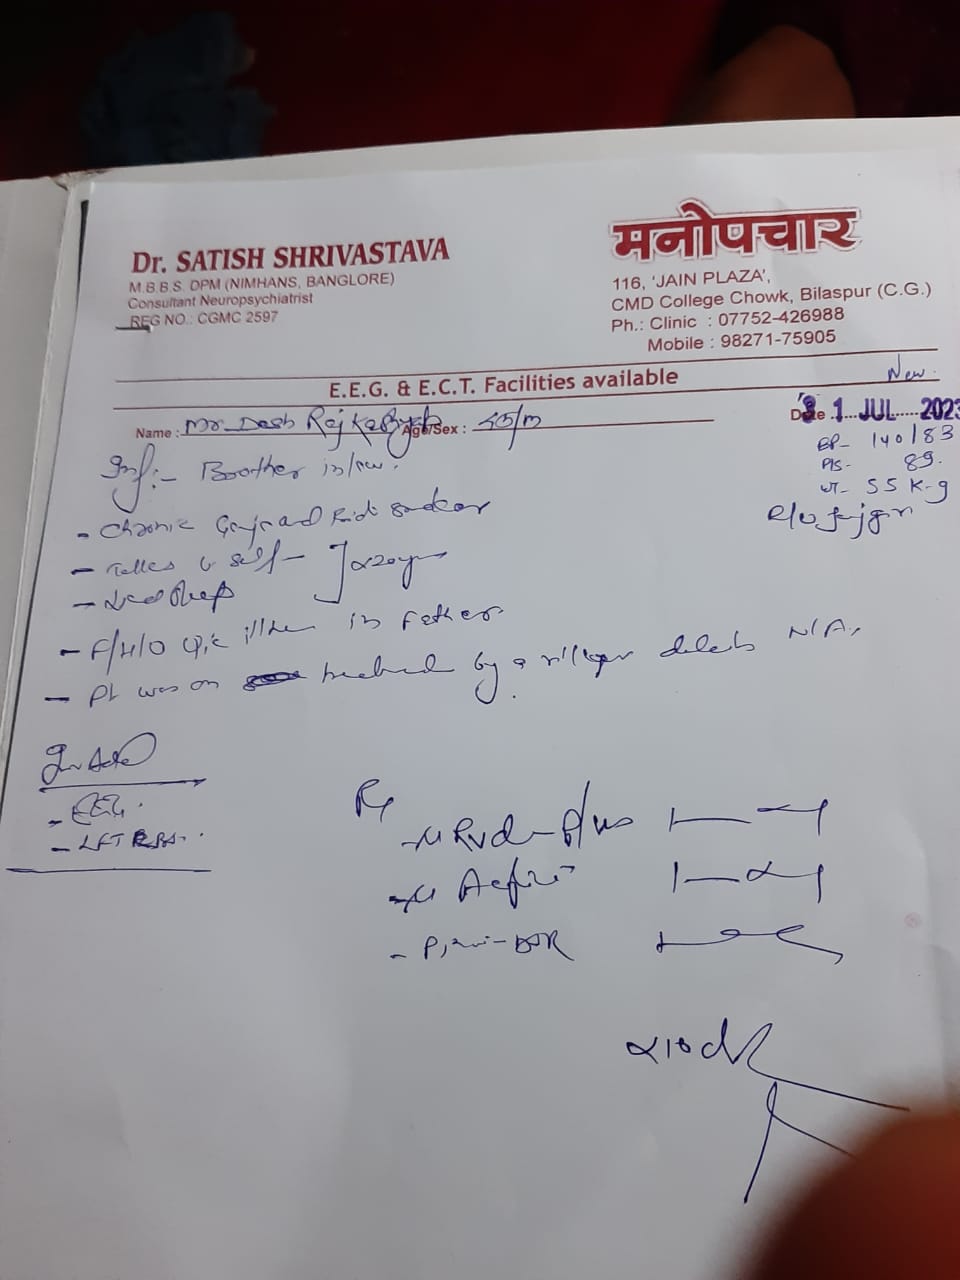 Dr. SATISH SHRIVASTAVA
M.B.B.S. DPM (NIMHANS, BANGLORE)
Consultant Neuropsychiatrist
REG NO.: CGMC 2597
मनोपचार
116, 'JAIN PLAZA',
CMD College Chowk, Bilaspur (C.G.)
Ph.: Clinic : 07752-426988
Mobile : 98271-75905
E.E.G. & E.C.T. Facilities available
New
Name : Mr. Desh Raj Age/Sex : 45/M
Date 31 JUL 2023
BP- 140/83
P/s- 89.
wt- 55 K-g
Inf:- Brother in law.
- Chronic Ganja and
- Talks to self -
- F/H/O illness in Father
- Pt was on treatment by a villager details N/A.
- EEG.
- LFT RBS.
Rx
Plus 1
1
- DSR
x10d